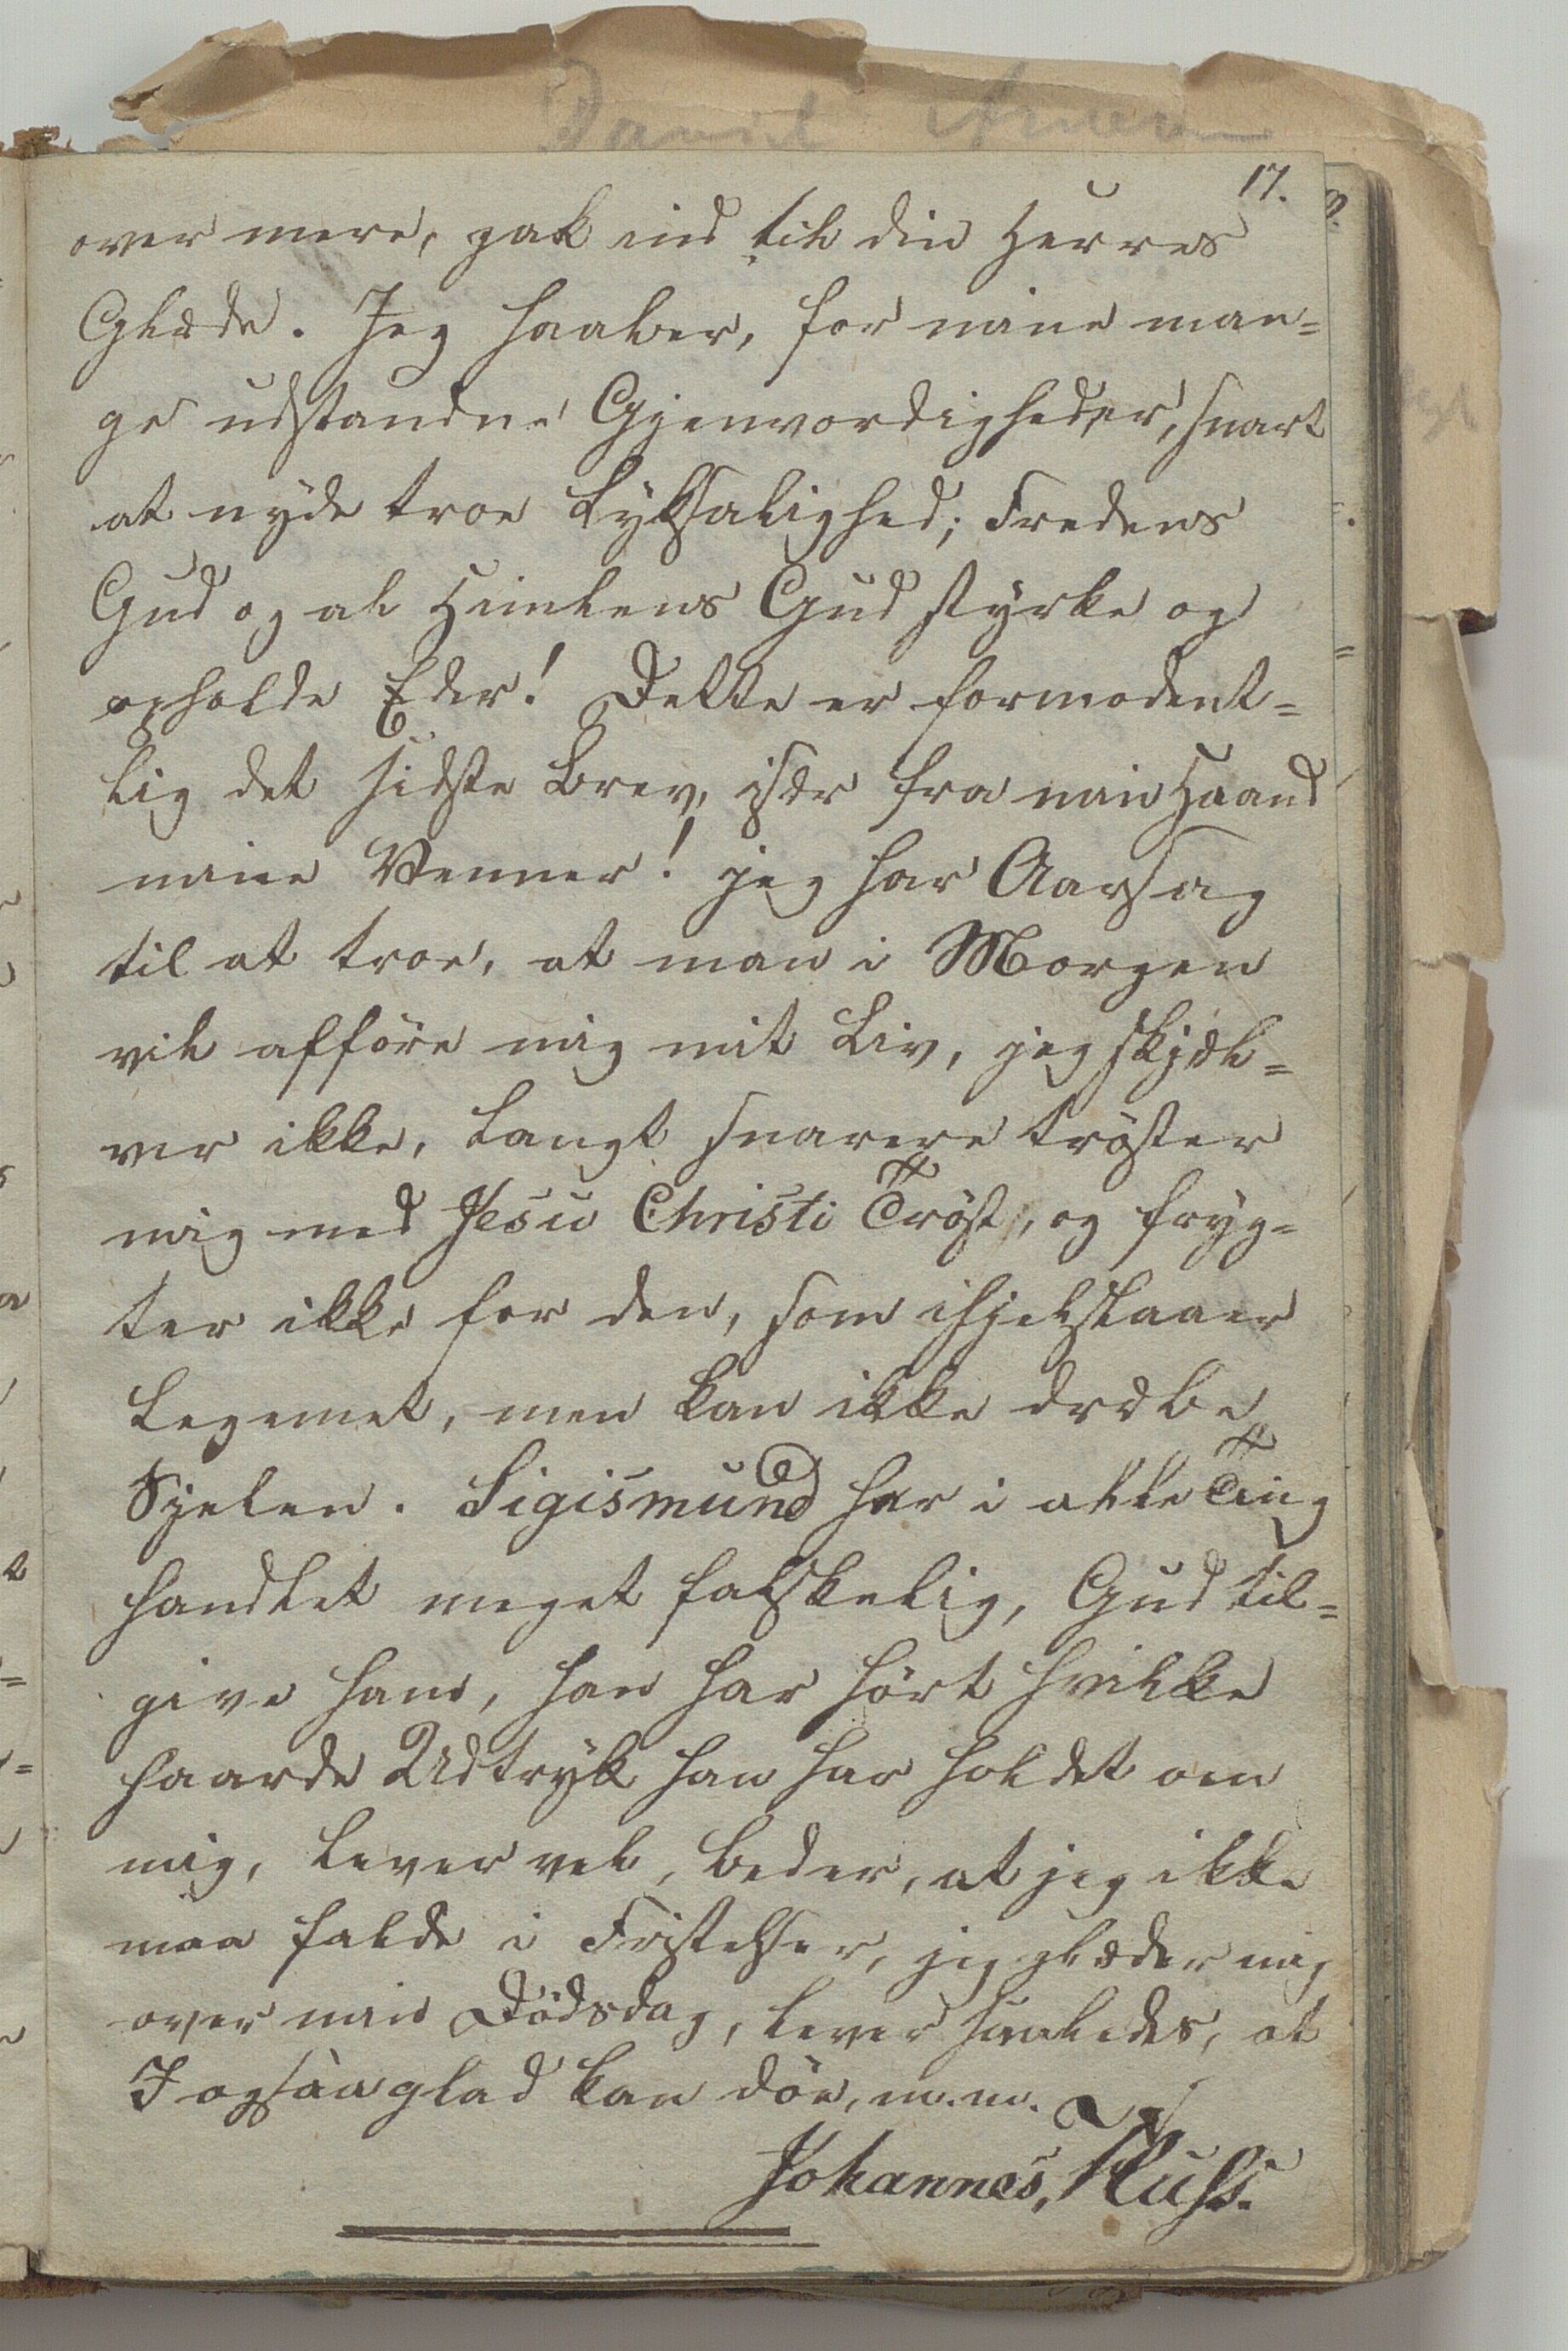 17.
over mere, gak ind til din Herres
Glæde. Jeg haaber, for mine man=
ge udstandne Gjenvordigheder, snart
at nyde troe Lyksalighed; Fredens
Gud og al Himlens Gud styrke og
opholde Eder! Dette er formodent=
lig det sidste Brev, især fra min Haand
mine Venner! jeg har Aarsag
til at troe, at man i Morgen
vil afføre mig mit Liv, jeg skjæl=
ver ikke, langt snarere trøster
mig med Jesu Christi Trøst, og fryg=
ter ikke for den, som ihjelslaaer
Legemet, men kan ikke dræbe
Sjelen. Sigismund har i alle Ting
handlet meget falskelig, Gud til=
give ham, han har hørt hvilke
haarde Udtryk han har holdet om
mig, lever vel, beder, at jeg ikke
maa falde i Fristelser, jeg glæder mig
over min Dødsdag, lever saaledes, at
I ogsaa glad kan döe, m.m.
Johannes, Huss.